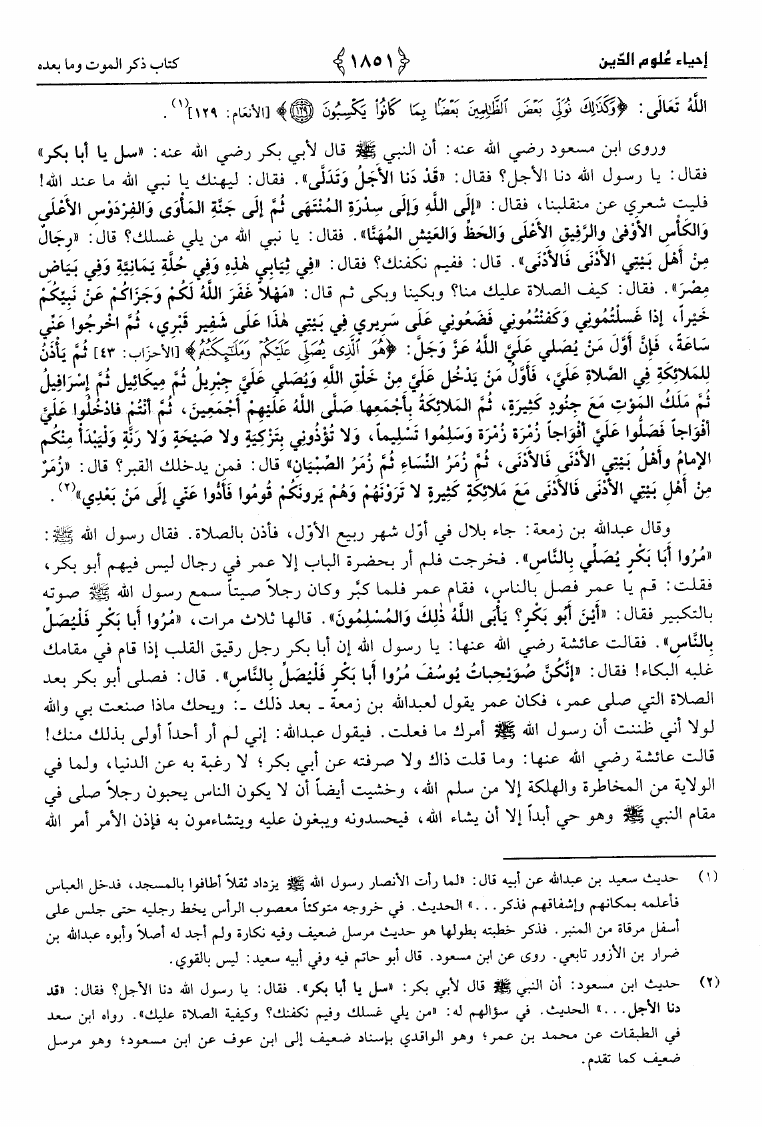 إحياء عُلوم الدّين ﴿١٨٥١﴾ كتاب ذكر الموت وما بعده
اللَّهُ تَعَالَى: ﴿وَكَذَٰلِكَ نُوَلِّي بَعْضَ ٱلظَّٰلِمِينَ بَعْضًۢا بِمَا كَانُوا۟ يَكْسِبُونَ ﴿١٢٩﴾﴾ [الأنعَام: ١٢٩](١).
وروى ابن مسعود رضي الله عنه: أن النبي ﷺ قال لأبي بكر رضي الله عنه: «سل يا أبا بكر»
فقال: يا رسول الله دنا الأجل؟ فقال: «قَدْ دَنا الأجَلُ وَتَدَلَّى». فقال: ليهنك يا نبي الله ما عند الله!
فليت شعري عن منقلبنا، فقال: «إلَى اللَّهِ وَإلى سِدْرَةِ المُنْتَهَى ثُمَّ إلى جَنَّةِ المَأْوَى وَالفِرْدَوْسِ الأعْلَى
وَالكَأْسِ الأوْفىٰ والرَّفِيقِ الأعْلَى وَالحَظِّ وَالعَيْشِ المُهَنَّا». فقال: يا نبي الله من يلي غسلك؟ قال: «رِجَالٌ
مِنْ أهْلِ بَيْتِي الأدْنَى فَالأدْنَى». قال: ففيم نكفنك؟ فقال: «فِي ثِيَابِي هٰذِهِ وَفِي حُلَّةٍ يَمَانِيَّةٍ وَفِي بَيَاضِ
مِصْرَ». فقال: كيف الصلاة عليك منا؟ وبكينا وبكى ثم قال: «مَهْلاً غَفَرَ اللَّهُ لَكُمْ وَجَزَاكُمْ عَنْ نَبِيِّكُمْ
خَيْراً، إذا غَسلْتُمُوني وَكَفنْتُمُوني فَضَعُوني عَلَى سَرِيري في بَيْتِي هٰذَا عَلَى شَفِيرِ قَبْرِي، ثُمَّ اخرجُوا عَنّي
سَاعَةً، فَإنَّ أوَّلَ مَنْ يُصَلي عَلَيَّ اللَّهُ عَزَّ وَجَلَّ: ﴿هُوَ ٱلَّذِى يُصَلِّى عَلَيْكُمْ وَمَلَٰٓئِكَتُهُۥ﴾ [الأحزَاب: ٤٣] ثُمَّ يَأْذَنُ
لِلمَلائِكَةِ فِي الصَّلاةِ عَلَيَّ، فَأوَّلُ مَنْ يَدْخُل عَلَيَّ مِنْ خَلْقِ اللَّهِ وَيُصَلي عَلَيَّ جِبْرِيلُ ثُمَّ مِيكَائِيل ثُمَّ إسْرَافِيلُ
ثُمَّ مَلَكُ المَوْتِ مَعَ جنُودٍ كَثِيرَةٍ، ثُمَّ المَلائِكَةُ بِأجْمَعِها صَلَّى اللَّهُ عَلَيْهِمْ أجْمَعِينَ، ثُمَّ أنْتُمْ فَادْخُلُوا عَلَيَّ
أفْوَاجاً فَصَلُّوا عَلَيَّ أفْوَاجاً زُمْرَة زُمْرَة وَسَلِمُوا تَسْلِيماً، وَلا تُؤْذُوني بِتَزْكِيَةٍ ولا صَيْحَةٍ وَلا رَنَّةٍ وَلْيَبْدَأ مِنْكُم
الإمامُ وَأهْلُ بَيْتِي الأدْنَى فَالأدْنَى، ثُمَّ زُمَرُ النِّسَاءِ ثُمَّ زُمَرُ الصِّبْيَانِ» قال: فمن يدخلك القبر؟ قال: «زُمَرٌ
مِنْ أهْلِ بَيْتِي الأدْنَى فَالأدْنَى مَعَ مَلائِكَةٍ كَثِيرةٍ لا تَرَوْنَهُمْ وَهُمْ يَرونَكُمْ قُومُوا فَأدُّوا عَنّي إلى مَنْ بَعْدِي»(٢).
وقال عبدالله بن زمعة: جاء بلال في أوّل شهر ربيع الأوّل، فأذن بالصلاة. فقال رسول الله ﷺ:
«مُرُوا أبَا بَكْرٍ يُصَلّي بِالنَّاسِ». فخرجت فلم أر بحضرة الباب إلا عمر في رجال ليس فيهم أبو بكر،
فقلت: قم يا عمر فصل بالناس، فقام عمر فلما كبَّر وكان رجلاً صيتاً سمع رسول الله ﷺ صوته
بالتكبير فقال: «أيْنَ أبُو بَكْرٍ؟ يَأْبَى اللَّهُ ذٰلِكَ وَالمُسْلِمُونَ». قالها ثلاث مرات، «مُرُوا أبا بَكْرٍ فَلْيُصَلِّ
بِالنَّاسِ». فقالت عائشة رضي الله عنها: يا رسول الله إن أبا بكر رجل رقيق القلب إذا قام في مقامك
غلبه البكاء! فقال: «إنَّكُنَّ صُوَيْحِباتُ يُوسُفَ مُرُوا أبَا بَكْرٍ فَلْيُصَلِّ بِالنَّاسِ». قال: فصلى أبو بكر بعد
الصلاة التي صلى عمر، فكان عمر يقول لعبدالله بن زمعة ـ بعد ذلك ـ: ويحك ماذا صنعت بي والله
لولا أني ظننت أن رسول الله ﷺ أمرك ما فعلت. فيقول عبدالله: إني لم أر أحداً أولى بذلك منك!
قالت عائشة رضي الله عنها: وما قلت ذاك ولا صرفته عن أبي بكر؛ لا رغبة به عن الدنيا، ولما في
الولاية من المخاطرة والهلكة إلا من سلم الله، وخشيت أيضاً أن لا يكون الناس يحبون رجلاً صلى في
مقام النبي ﷺ وهو حي أبداً إلا أن يشاء الله، فيحسدونه ويبغون عليه ويتشاءمون به فإذن الأمر أمر الله
(١) حديث سعيد بن عبدالله عن أبيه قال: «لما رأت الأنصار رسول الله ﷺ يزداد ثقلاً أطافوا بالمسجد، فدخل العباس
فأعلمه بمكانهم وإشفاقهم فذكر...» الحديث. في خروجه متوكئاً معصوب الرأس يخط رجليه حتى جلس على
أسفل مرقاة من المنبر. فذكر خطبته بطولها هو حديث مرسل ضعيف وفيه نكارة ولم أجد له أصلاً وأبوه عبدالله بن
ضرار بن الأزور تابعي. روى عن ابن مسعود. قال أبو حاتم فيه وفي أبيه سعيد: ليس بالقوي.
(٢) حديث ابن مسعود: أن النبي ﷺ قال لأبي بكر: «سل يا أبا بكر». فقال: يا رسول الله دنا الأجل؟ فقال: «قد
دنا الأجل...» الحديث. في سؤالهم له: «من يلي غسلك وفيم نكفنك؟ وكيفية الصلاة عليك». رواه ابن سعد
في الطبقات عن محمد بن عمر؛ وهو الواقدي بإسناد ضعيف إلى ابن عوف عن ابن مسعود؛ وهو مرسل
ضعيف كما تقدم.